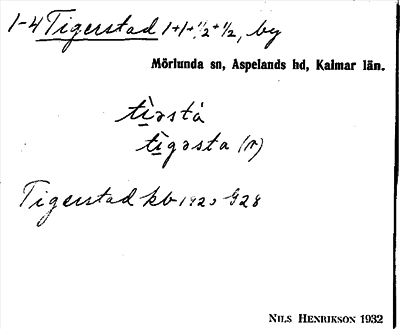 1-4 Tigerstad 1+1+1/2+1/2, by
Mörlunda sn, Aspelands hd, Kalmar län.
tìəstá
tìgəsta (r)
Tigerstad kb 1925 G28
NILS HENRIKSON 1932